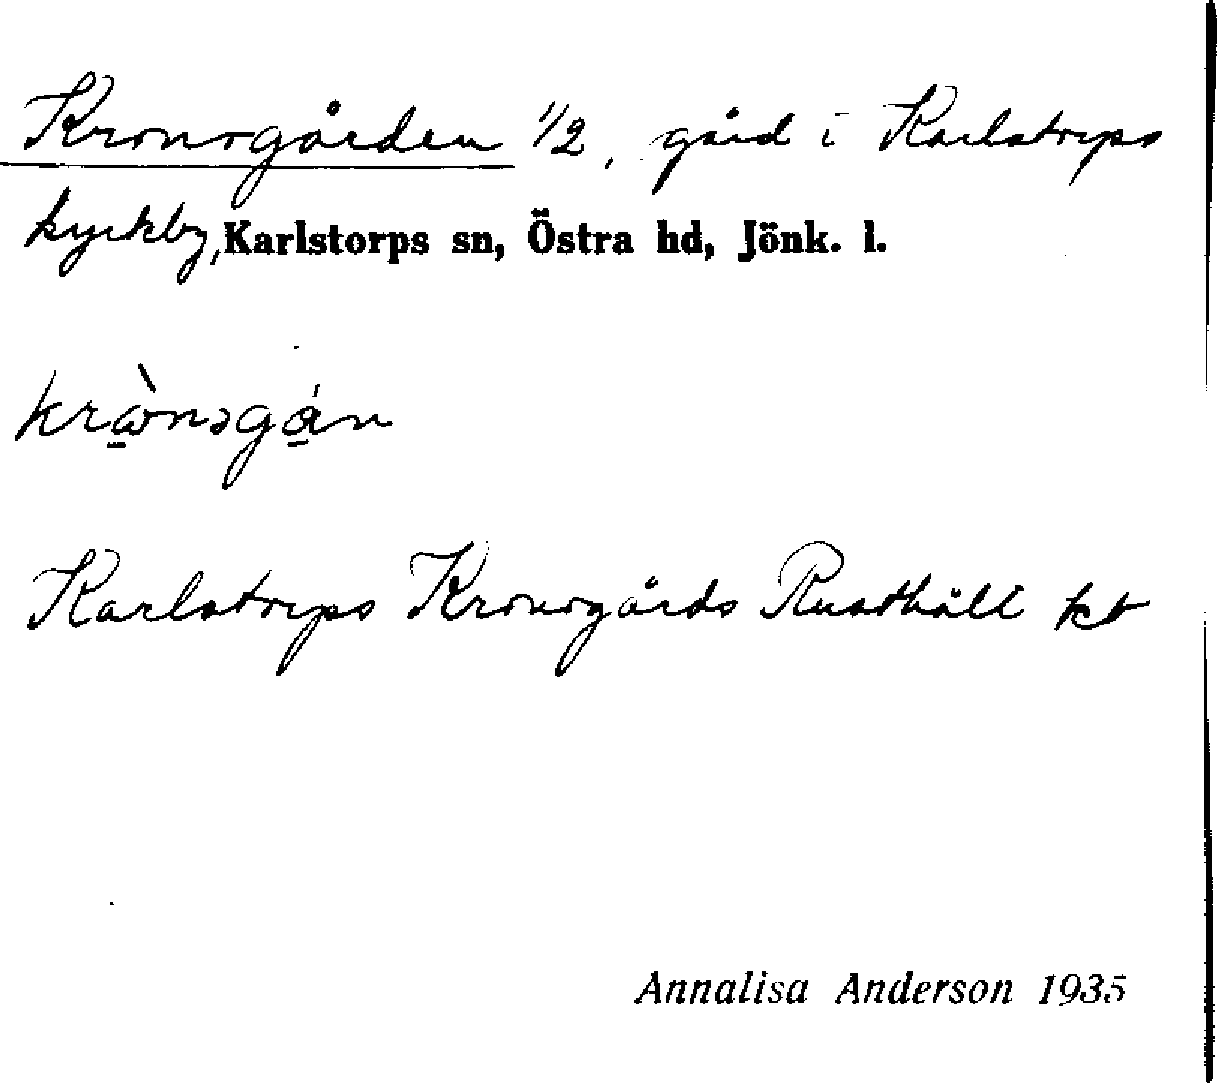 Kronogården 1/2, gård i Karlstorps
kyrkby, Karlstorps sn, Östra hd, Jönk. l.
Karlstorps Kronogårds Rusthåll kt
Annalisa Anderson 1935